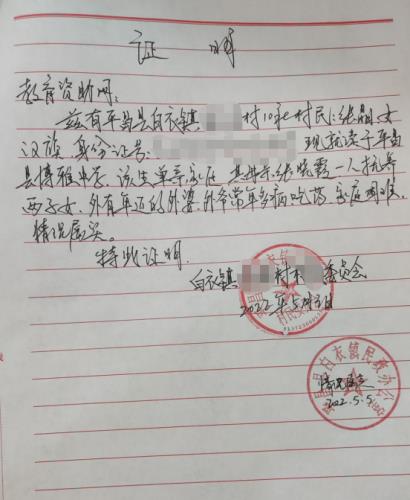 证 明
教育资助网:
兹有平昌县白衣镇 村10社村民:张 , 女
汉族, 身份证号: 现就读于平昌
县博雅中学, 该生单亲家庭 其母亲张 霞一人抚养
两子女, 外有年迈的外婆, 外爷常年多病吃药, 家庭困难,
情况属实。
特此证明.
白衣镇 村 委员会
2022年5月 日
平昌县白衣镇民政办公
情况属实
2022.5.5